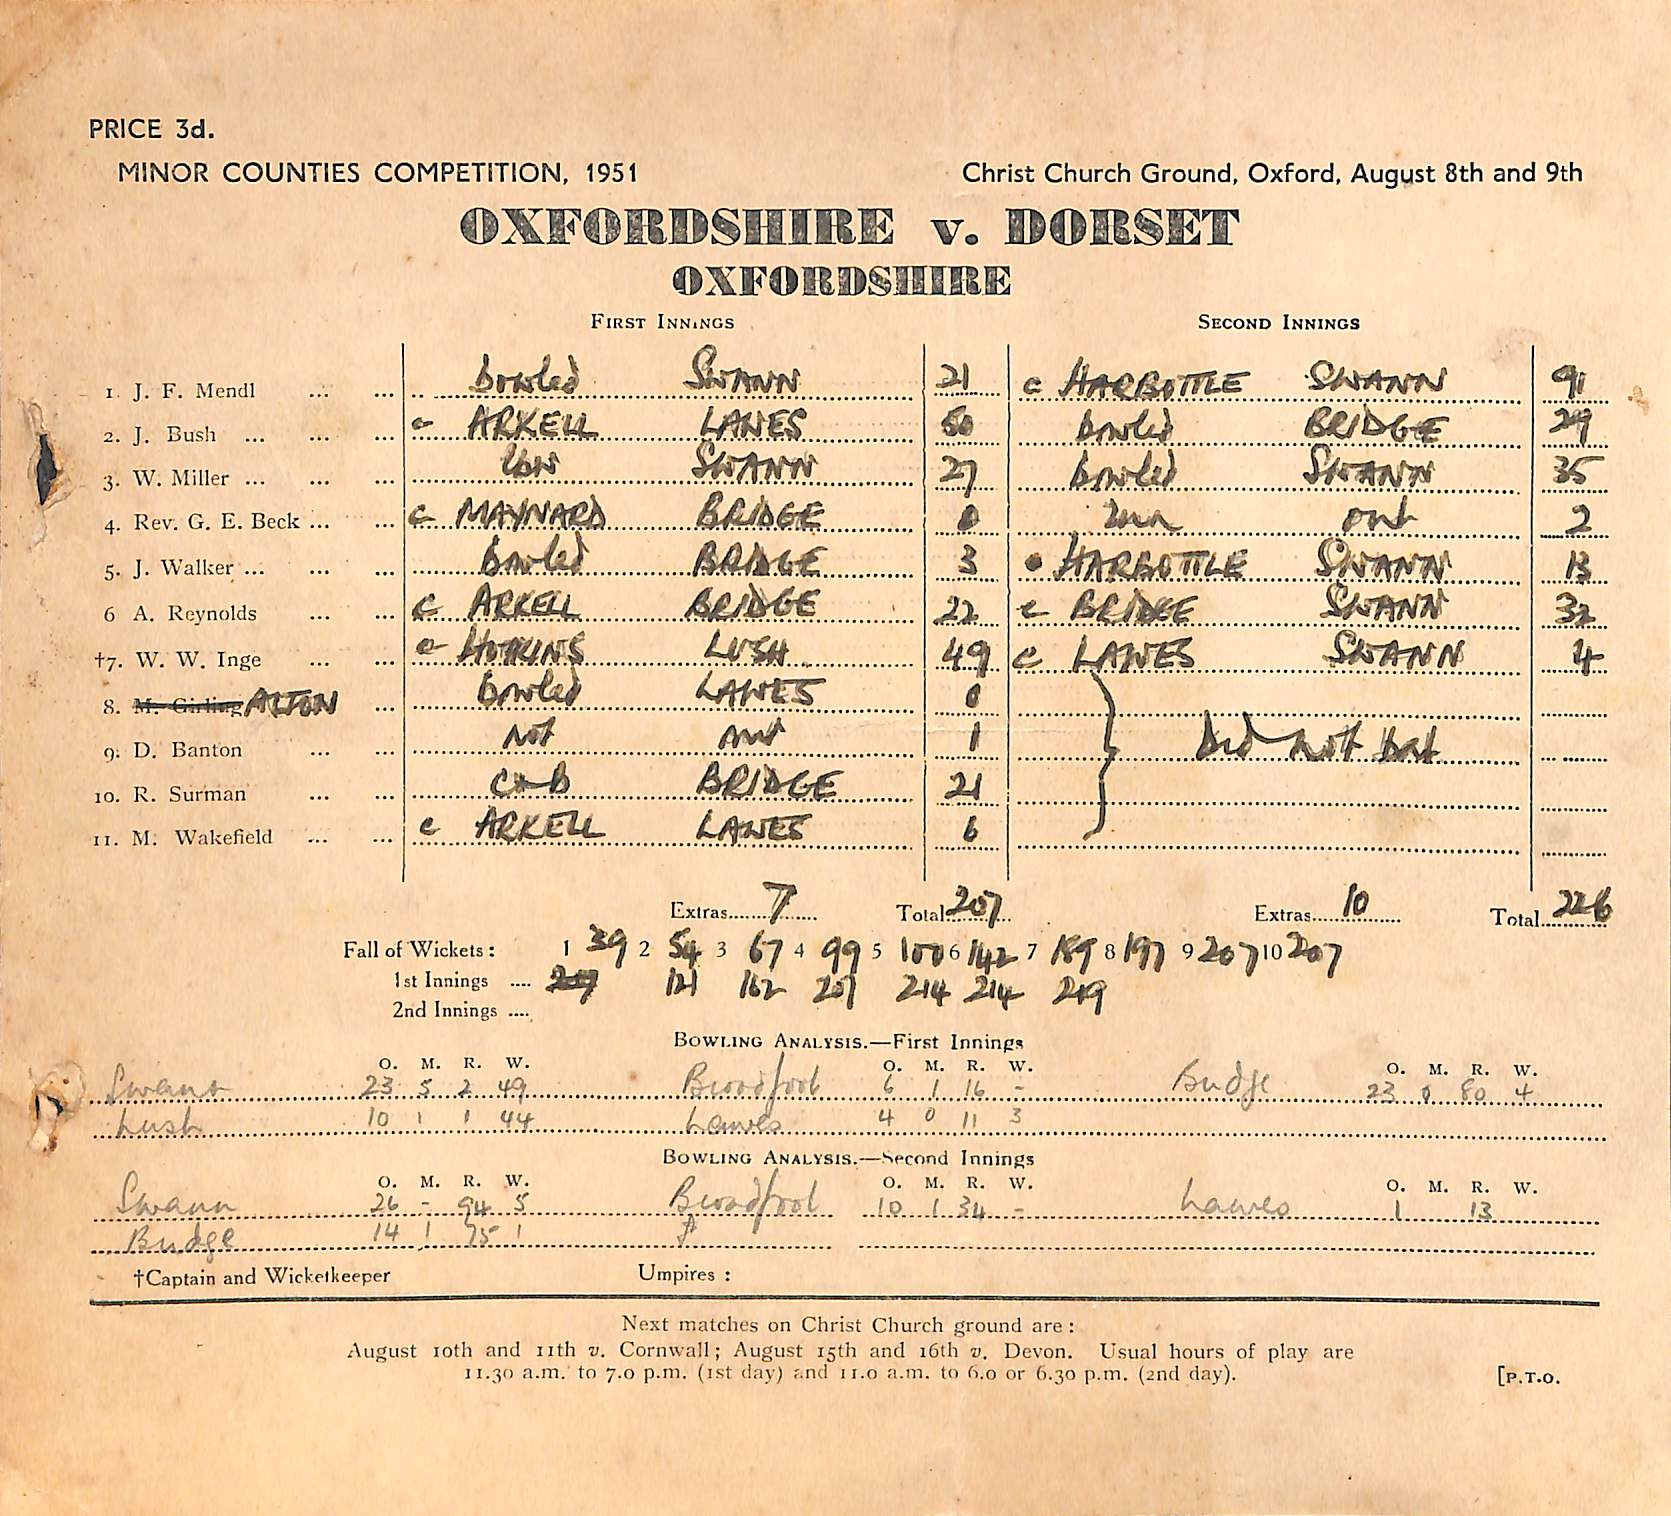 PRICE 3d.
MINOR COUNTIES COMPETITION, 1951 Christ Church Ground, Oxford, August 8th and 9th
OXFORDSHIRE v. DORSET
OXFORDSHIRE
FIRST INNINGS SECOND INNINGS
1. J. F. Mendl ... ... bowled SWANN 21 c HARBOTTLE SWANN 91
2. J. Bush ... ... ... c ARKELL LAWES 50 bowled BRIDGE 29
3. W. Miller ... ... ... lbw SWANN 27 bowled SWANN 35
4. Rev. G. E. Beck ... ... c MAYNARD BRIDGE 0 run out 2
5. J. Walker ... ... ... bowled BRIDGE 3 c HARBOTTLE SWANN 13
6 A. Reynolds ... ... c ARKELL BRIDGE 22 c BRIDGE SWANN 32
†7. W. W. Inge ... ... c HOTKINS LUSH 49 c LAWES SWANN 4
8. M. Girling ALTON ... bowled LAWES 0
9. D. Banton ... ... not out 1 Did not bat
10. R. Surman ... ... C & B BRIDGE 21
11. M. Wakefield ... ... c ARKELL LAWES 6
Extras 7 Total 207 Extras 10 Total 226
Fall of Wickets: 1 39 2 54 3 67 4 99 5 100 6 142 7 189 8 197 9 207 10 207
1st Innings .... 121 162 207 214 214 219
2nd Innings ....
BOWLING ANALYSIS.—First Innings
O. M. R. W. O. M. R. W. O. M. R. W.
Swann 23 5 2 49 Broadfoot 6 1 16 - Bridge 23 0 80 4
Lush 10 1 1 44 Lawes 4 0 11 3
BOWLING ANALYSIS.—Second Innings
O. M. R. W. O. M. R. W. O. M. R. W.
Swann 26 - 94 5 Broadfoot 10 1 34 - Lawes 1 13
Bridge 14 1 75 1
†Captain and Wicketkeeper Umpires :
Next matches on Christ Church ground are :
August 10th and 11th v. Cornwall; August 15th and 16th v. Devon. Usual hours of play are
11.30 a.m. to 7.0 p.m. (1st day) and 11.0 a.m. to 6.0 or 6.30 p.m. (2nd day). [P.T.O.